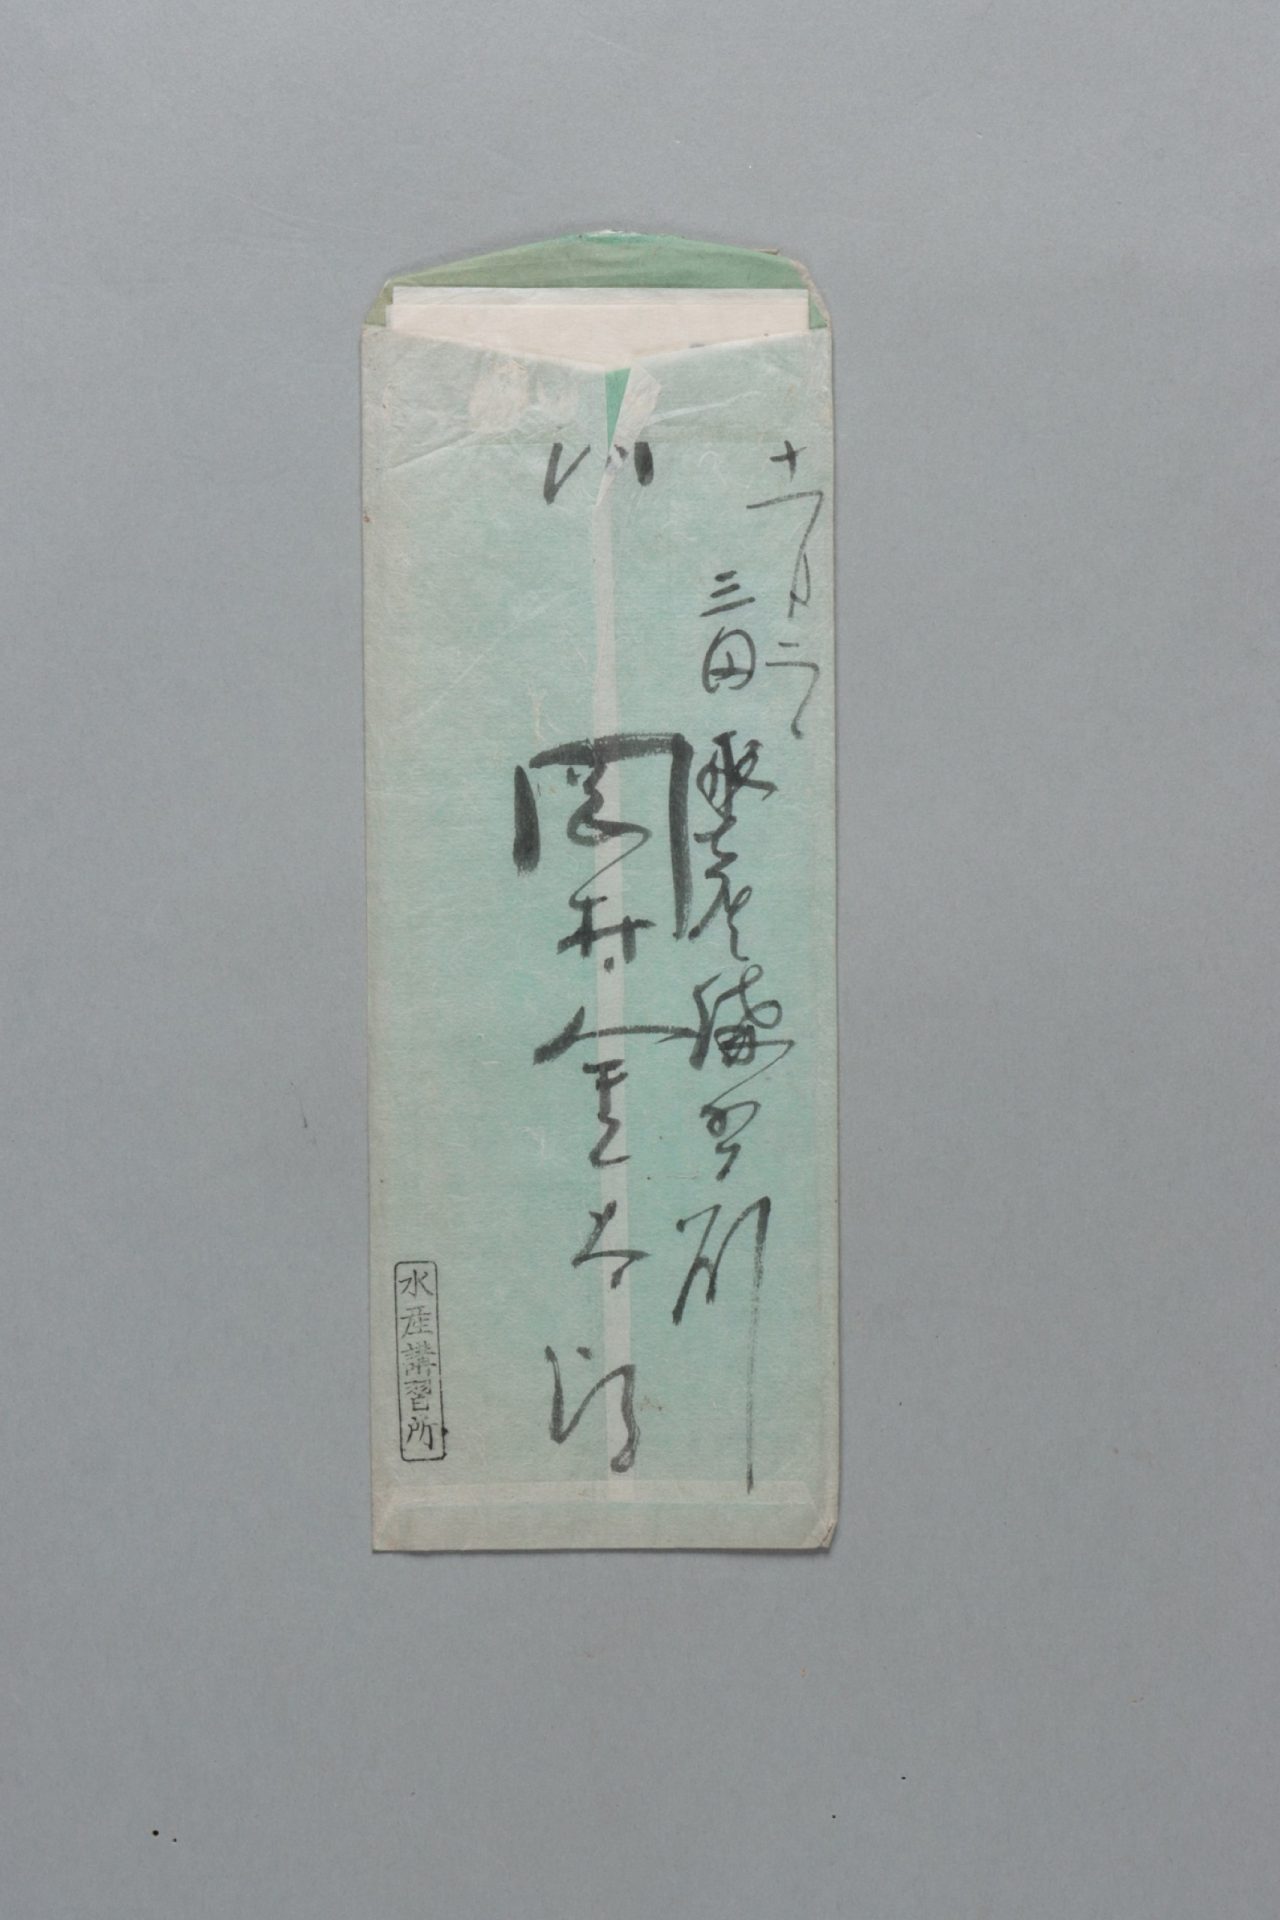 十一月二日
三田
水産講習所
岡村金太郎
水産講習所